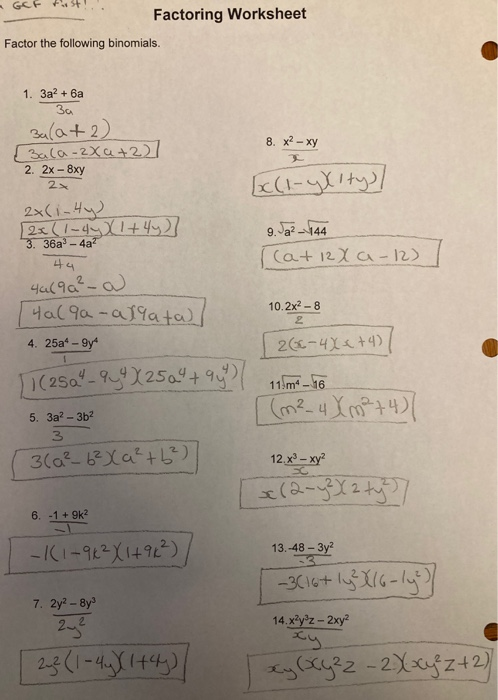 GCF first!..
Factoring Worksheet
Factor the following binomials.
1. 3a² + 6a
3a
3a(a+2)
3a(a-2)(a+2)
2. 2x – 8xy
2x
2x(1-4y)
2x(1-4y)(1+4y)
3. 36a³ – 4a²
4a
4a(9a²-a)
4a(9a-a)(9a+a)
4. 25a⁴ – 9y⁴
1
1(25a⁴-9y⁴)(25a⁴+9y⁴)
5. 3a² – 3b²
3
3(a²-b²)(a²+b²)
6. -1 + 9k²
-1
-1(1-9k²)(1+9k²)
7. 2y² – 8y³
2y²
2y²(1-4y)(1+4y)
8. x² – xy
x
x(1-y)(1+y)
9. √a² – √144
(a+12)(a-12)
10. 2x² – 8
2
2(x-4)(x+4)
11. √m⁴ – √16
(m²-4)(m²+4)
12. x³ – xy²
x
x(2-y²)(2+y²)
13. -48 – 3y²
-3
-3(16+1y²)(16-1y²)
14. x²y³z – 2xy²
xy
xy(xy²z-2)(xy²z+2)